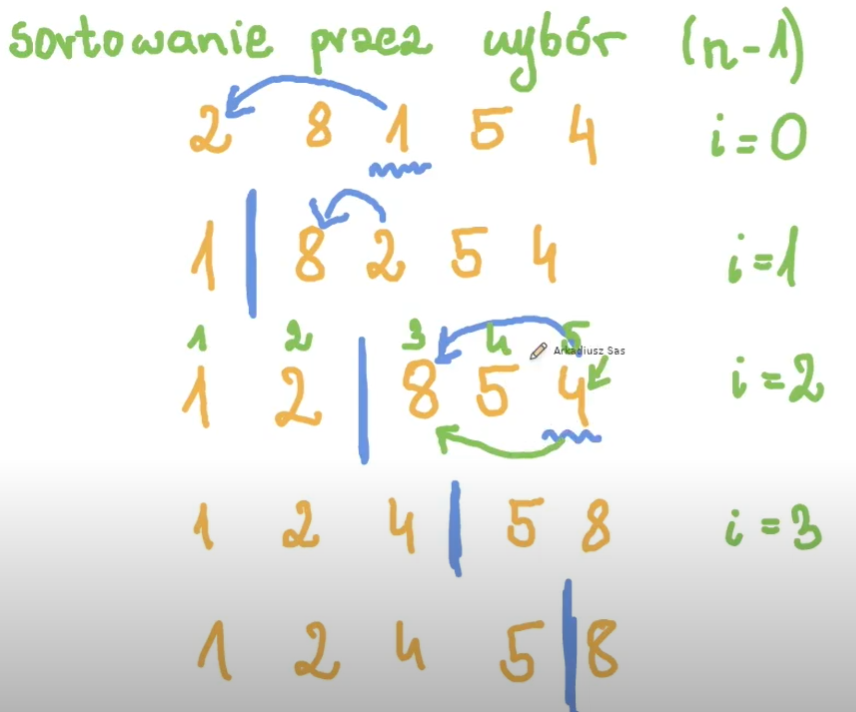 sortowanie przez wybór (n-1)
2 8 1 5 4 i=0
1 | 8 2 5 4 i=1
1 2 3 4 5
Arkadiusz Sas
1 2 | 8 5 4 i=2
1 2 4 | 5 8 i=3
1 2 4 5 | 8